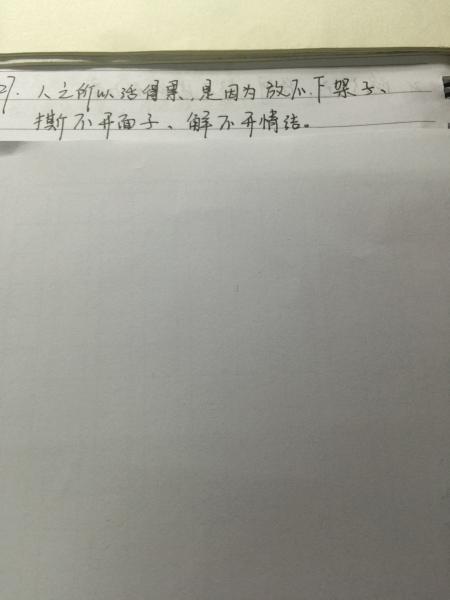 27. 人之所以活得累，是因为放不下架子、
撕不开面子、解不开情结。